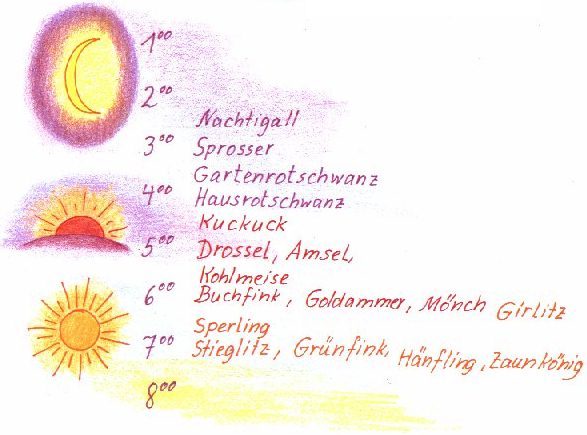 1⁰⁰
2⁰⁰
Nachtigall
3⁰⁰ Sprosser
Gartenrotschwanz
4⁰⁰ Hausrotschwanz
Kuckuck
5⁰⁰ Drossel, Amsel,
Kohlmeise
6⁰⁰ Buchfink, Goldammer, Mönch Girlitz
Sperling
7⁰⁰ Stieglitz, Grünfink, Hänfling, Zaunkönig
8⁰⁰